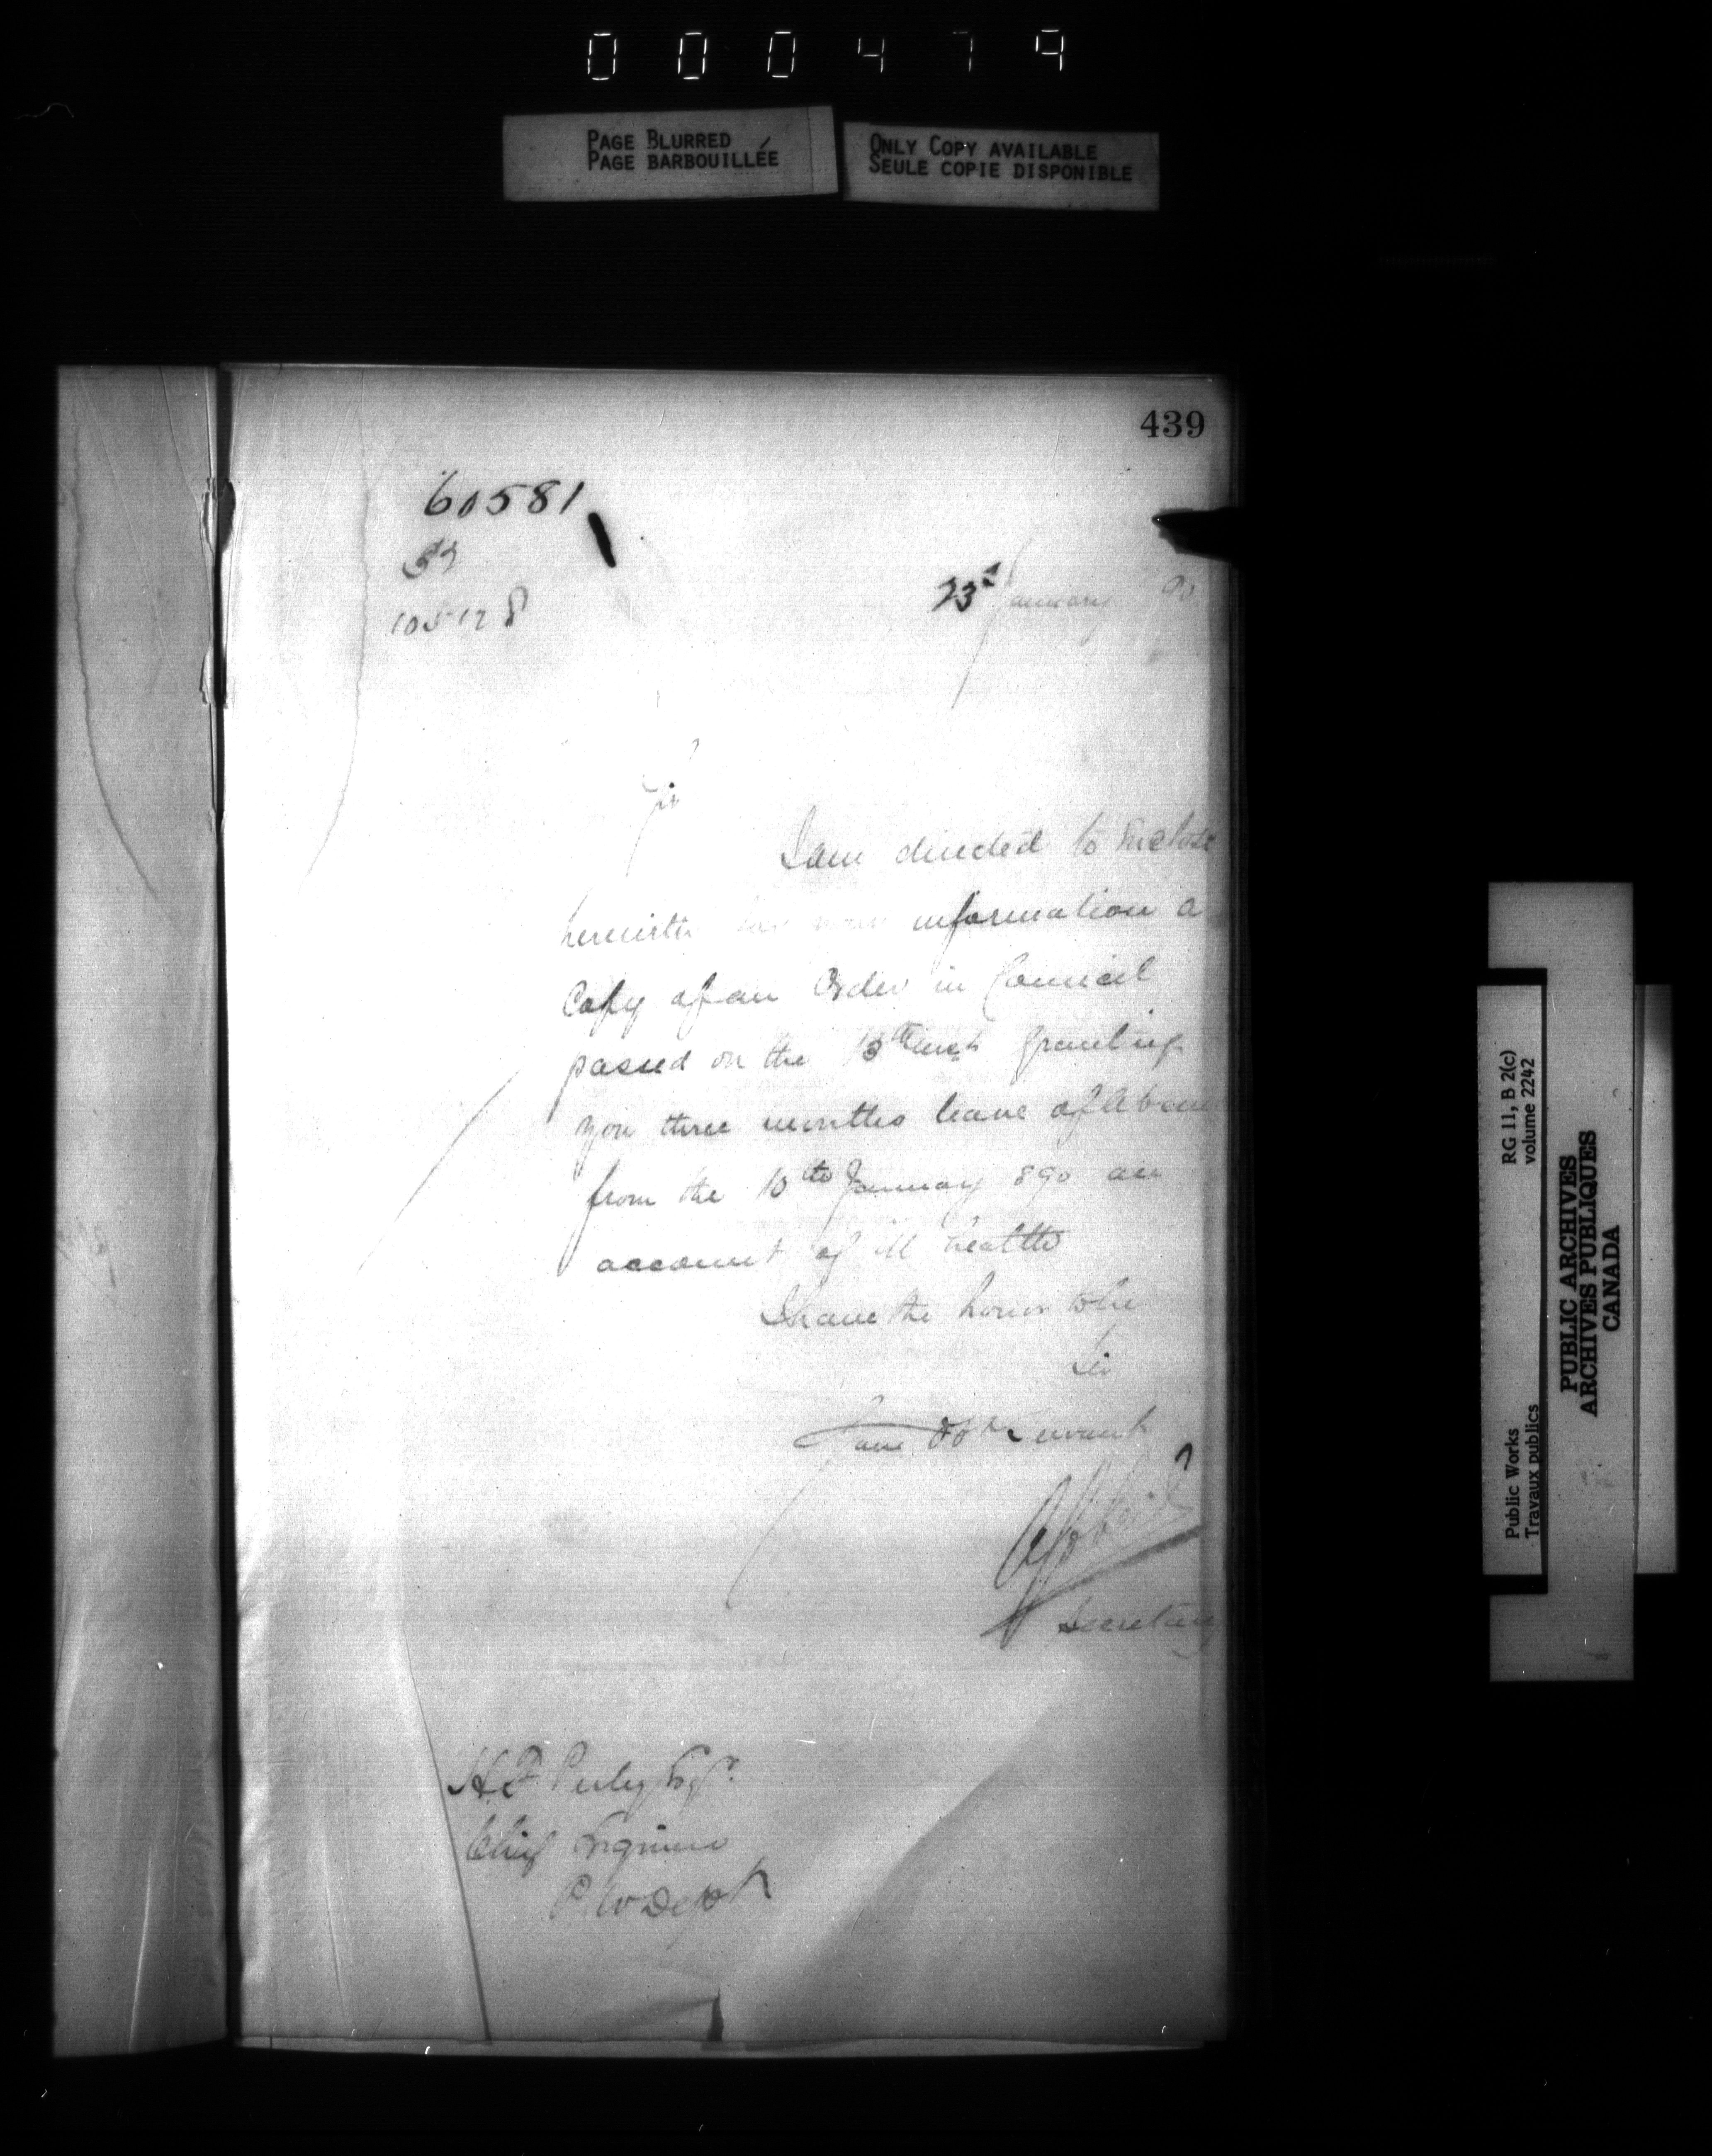 000479
PAGE BLURRED
PAGE BARBOUILLÉE
ONLY COPY AVAILABLE
SEULE COPIE DISPONIBLE
439
60581
23d January 90
Sir
I am directed to Enclose
herewith for your information a
Copy of an Order in Council
passed on the 13th inst granting
you three months leave of Absence
from the 10th January 890 on
account of ill health
I have the honor to be
Sir
Your Obt Servant
Secretary
H F Perley Esqr.
Chief Engineer
P W Dept
RG 11, B 2(c)
volume 2242
Public Works
Travaux publics
PUBLIC ARCHIVES
ARCHIVES PUBLIQUES
CANADA